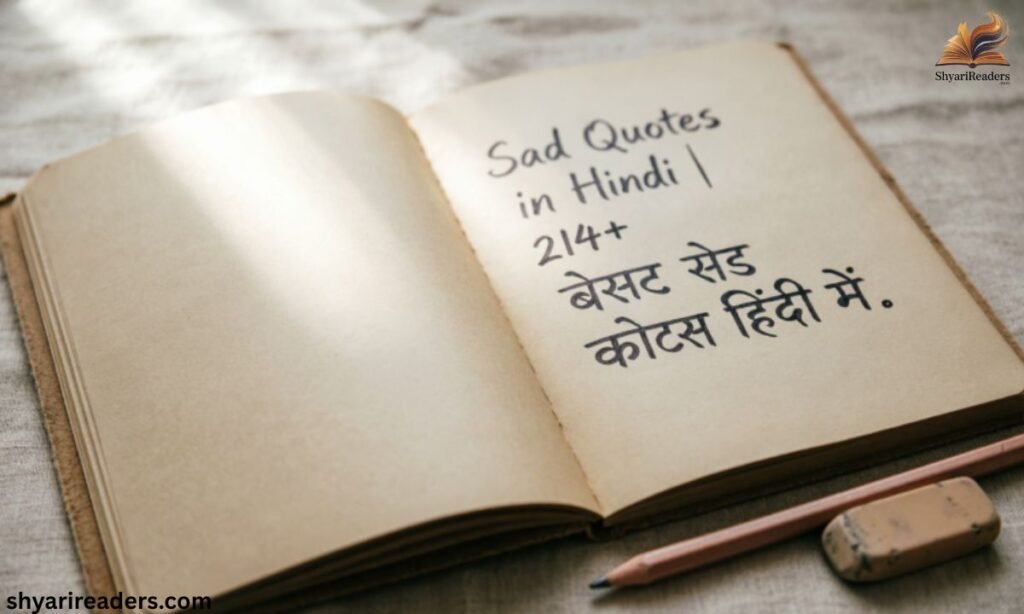 ShyariReaders
Sad Quotes
in Hindi |
214+
बेसट सेड
कोटस हिंदी में.
shyarireaders.com